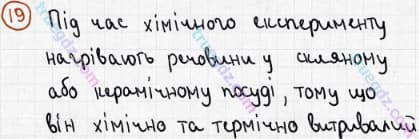 19 Під час хімічного експерименту
нагрівають речовини у скляному
або керамічному посуді, тому що
він хімічно та термічно витривалий